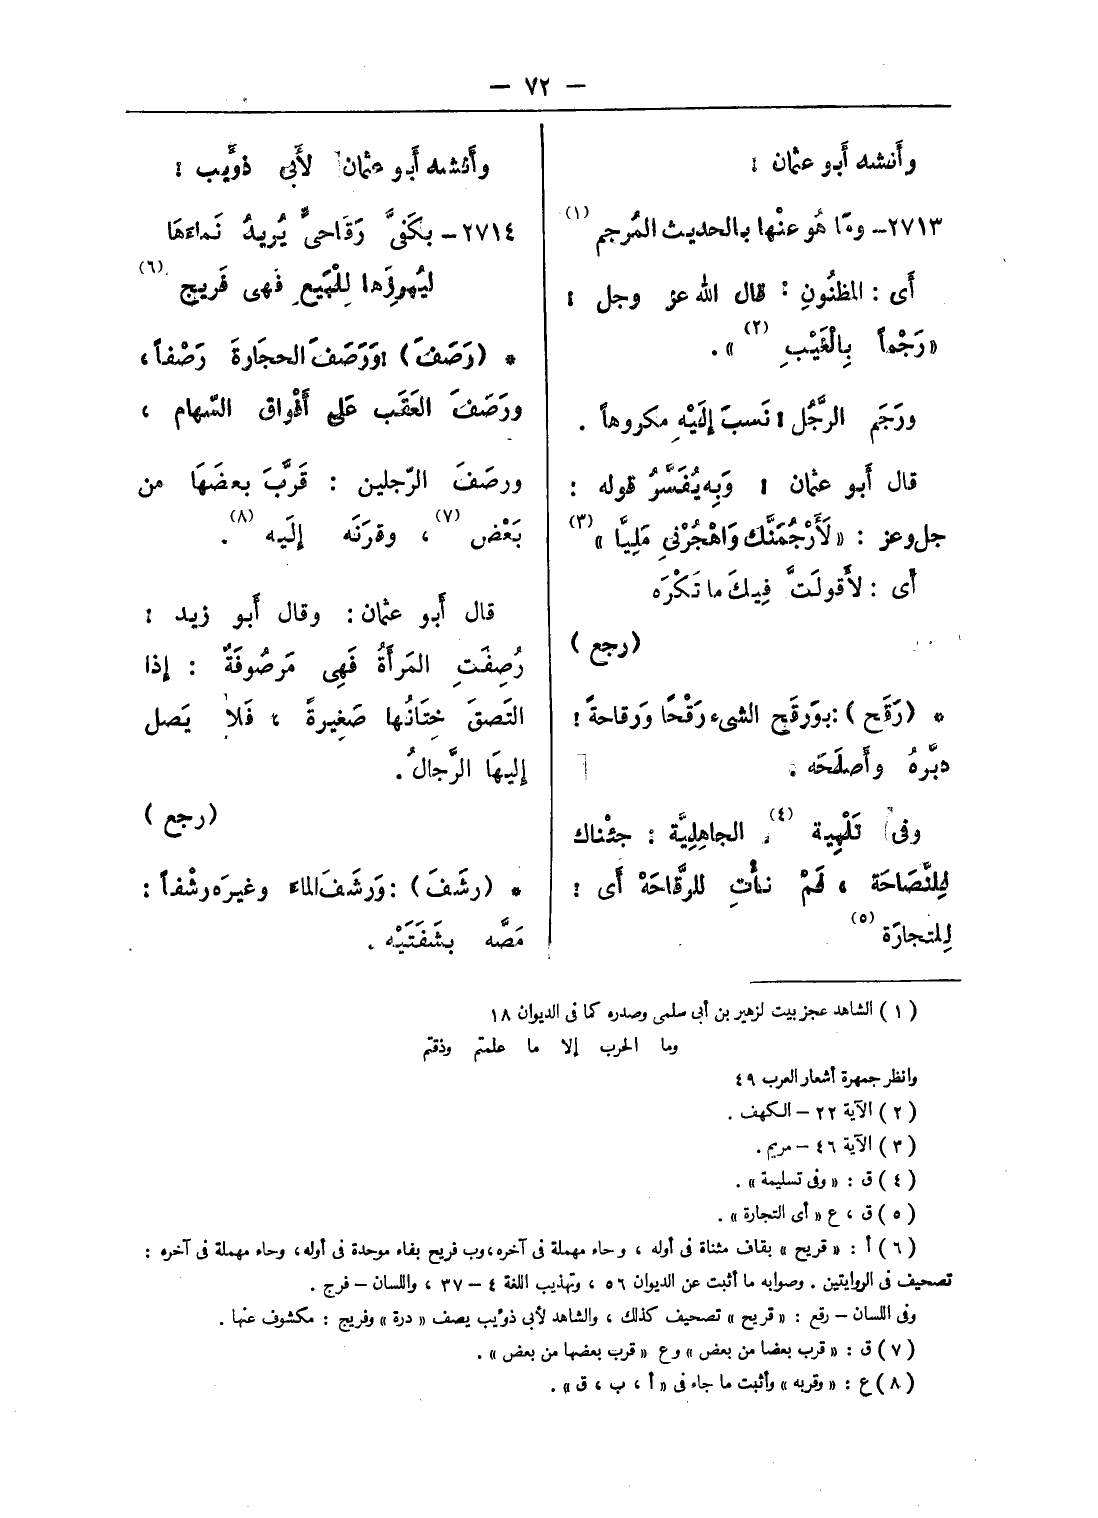 — ٧٢ —
وأَنشده أَبو عثمان :
٢٧١٣- وما هُو عنْها بالحديث المُرجم (١)
أَى : المظنُونِ : قال الله عز وجل :
«رَجْماً بِالْغَيْبِ (٢)» .
ورَجَم الرَّجُل : نَسبَ إِلَيْهِ مكروهاً .
قال أَبو عثمان : وَبِه يُفَسَّرُ قوله :
جل وعز : «لَأَرْجُمَنَّك وَاهْجُرْنِى مَلِيًّا» (٣)
أى : لأَقولَنَّ فِيكَ ما تَكْرَه
(رجع)
* (رَقَح) : ورَقَح الشىء رَقْحًا ورَقاحةً :
دبَّرهُ وأَصلَحَه .
وفى تَلْهِية (٤) الجاهِلِيَّة : جئْناك
لِلنَّصَاحَة ، لَمْ نأْتِ للرَّقَاحَة أَى :
لِلتجارَة (٥)
وأَنشده أَبو عثمان لأَبى ذوَّيب :
٢٧١٤- بكَفىَّ رَقَاحىٍّ يُريدُ نَماءَهَا
ليُبرزَها لِلْبَيعِ فَهى فَريج (٦)
* (رَصَفَ) : وَرَصَفَ الحجارَةَ رَصْفاً ،
ورَصَفَ العَقَب عَلَى أَفْواق السّهام ،
ورصَفَ الرّجلين : قَرَّبَ بعضَهَا من
بَعْض (٧) ، وقرَنَه إلَيه (٨) .
قال أَبو عثمان : وقال أَبو زيد :
رُصِفَتِ المَرأَةُ فَهِى مَرصُوفَةٌ : إذا
التَصقَ خِتَانُها صَغِيرةً ، فَلا يَصل
إليهَا الرَّجالُ .
(رجع)
* (رشَفَ) : وَرَشَفَ الماءَ وغيرَه رشْفاً :
مَصَّه بشَفَتَيْه .
(١) الشاهد عجز بيت لزهير بن أبى سلمى وصدره كما فى الديوان ١٨
وما الحرب إلا ما علمتم وذقتم
وانظر جمهرة أشعار العرب ٤٩
(٢) الآية ٢٢ – الكهف .
(٣) الآية ٤٦ – مريم .
(٤) ق : «وفى تسليمة» .
(٥) ق ، ع «أى التجارة» .
(٦) أ : «قريح» بقاف مثناة فى أوله ، وحاء مهملة فى آخره، وب فريح بفاء موحدة فى أوله، وحاء مهملة فى آخره :
تصحيف فى الروايتين . وصوابه ما أثبت عن الديوان ٥٦ ، وتهذيب اللغة ٤ – ٣٧ ، واللسان – فرج .
وفى اللسان – رقع : «قريح» تصحيف كذلك ، والشاهد لأبى ذوئيب يصف «درة» وفريج : مكشوف عنها .
(٧) ق : «قرب بعضا من بعض» وع «قرب بعضها من بعض» .
(٨) ع : «وقربه» وأثبت ما جاء فى «أ ، ب ، ق» .